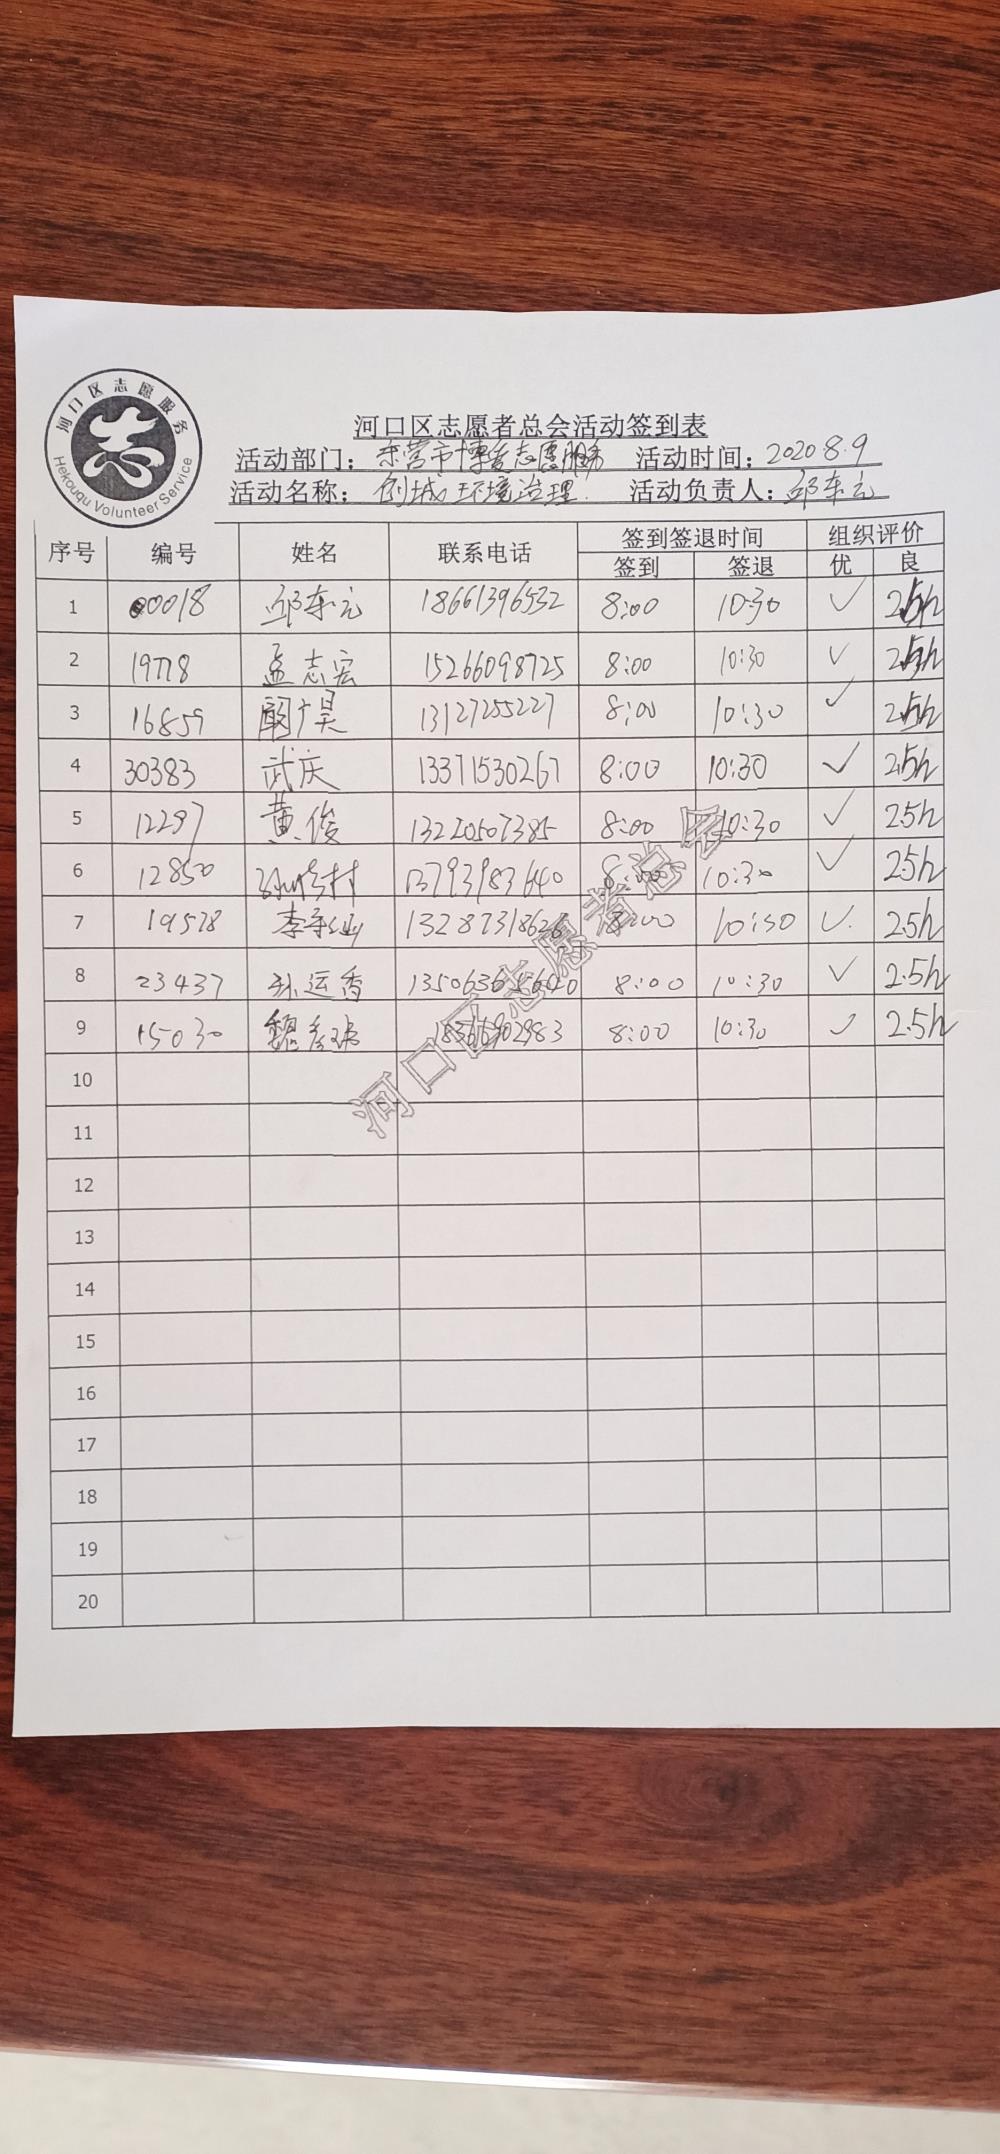 河口区志愿服务
Hekouqu Volunteer Service
河口区志愿者总会活动签到表
活动部门：东营市博爱志愿服务 活动时间：2020.8.9
活动名称：创城环境治理. 活动负责人：邱东元
序号 编号 姓名 联系电话 签到签退时间 组织评价
签到 签退 优 良
1 00018 邱东元 18661396532 8:00 10:30 ✓ 2.5h
2 19778 孟志宏 15266098725 8:00 10:30 ✓ 2.5h
3 16859 广昊 13127255227 8:00 10:30 ✓ 2.5h
4 30383 武庆 13371530267 8:00 10:30 ✓ 2.5h
5 12297 黄俊 13220507385 8:00 10:30 ✓ 2.5h
6 12850 村 13793983640 8:00 10:30 ✓ 2.5h
7 19578 李 13287318626 8:00 10:30 ✓ 2.5h
8 23437 孙运香 8:00 10:30 ✓ 2.5h
9 15030 魏秀 8:00 10:30 ✓ 2.5h
10
11
12
13
14
15
16
17
18
19
20
河口区志愿者总会